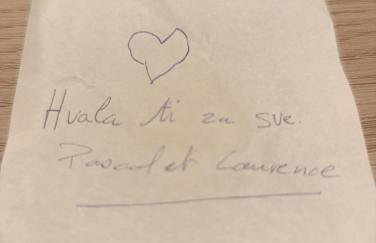 Hvala ti za sve.
Pascal et Laurence